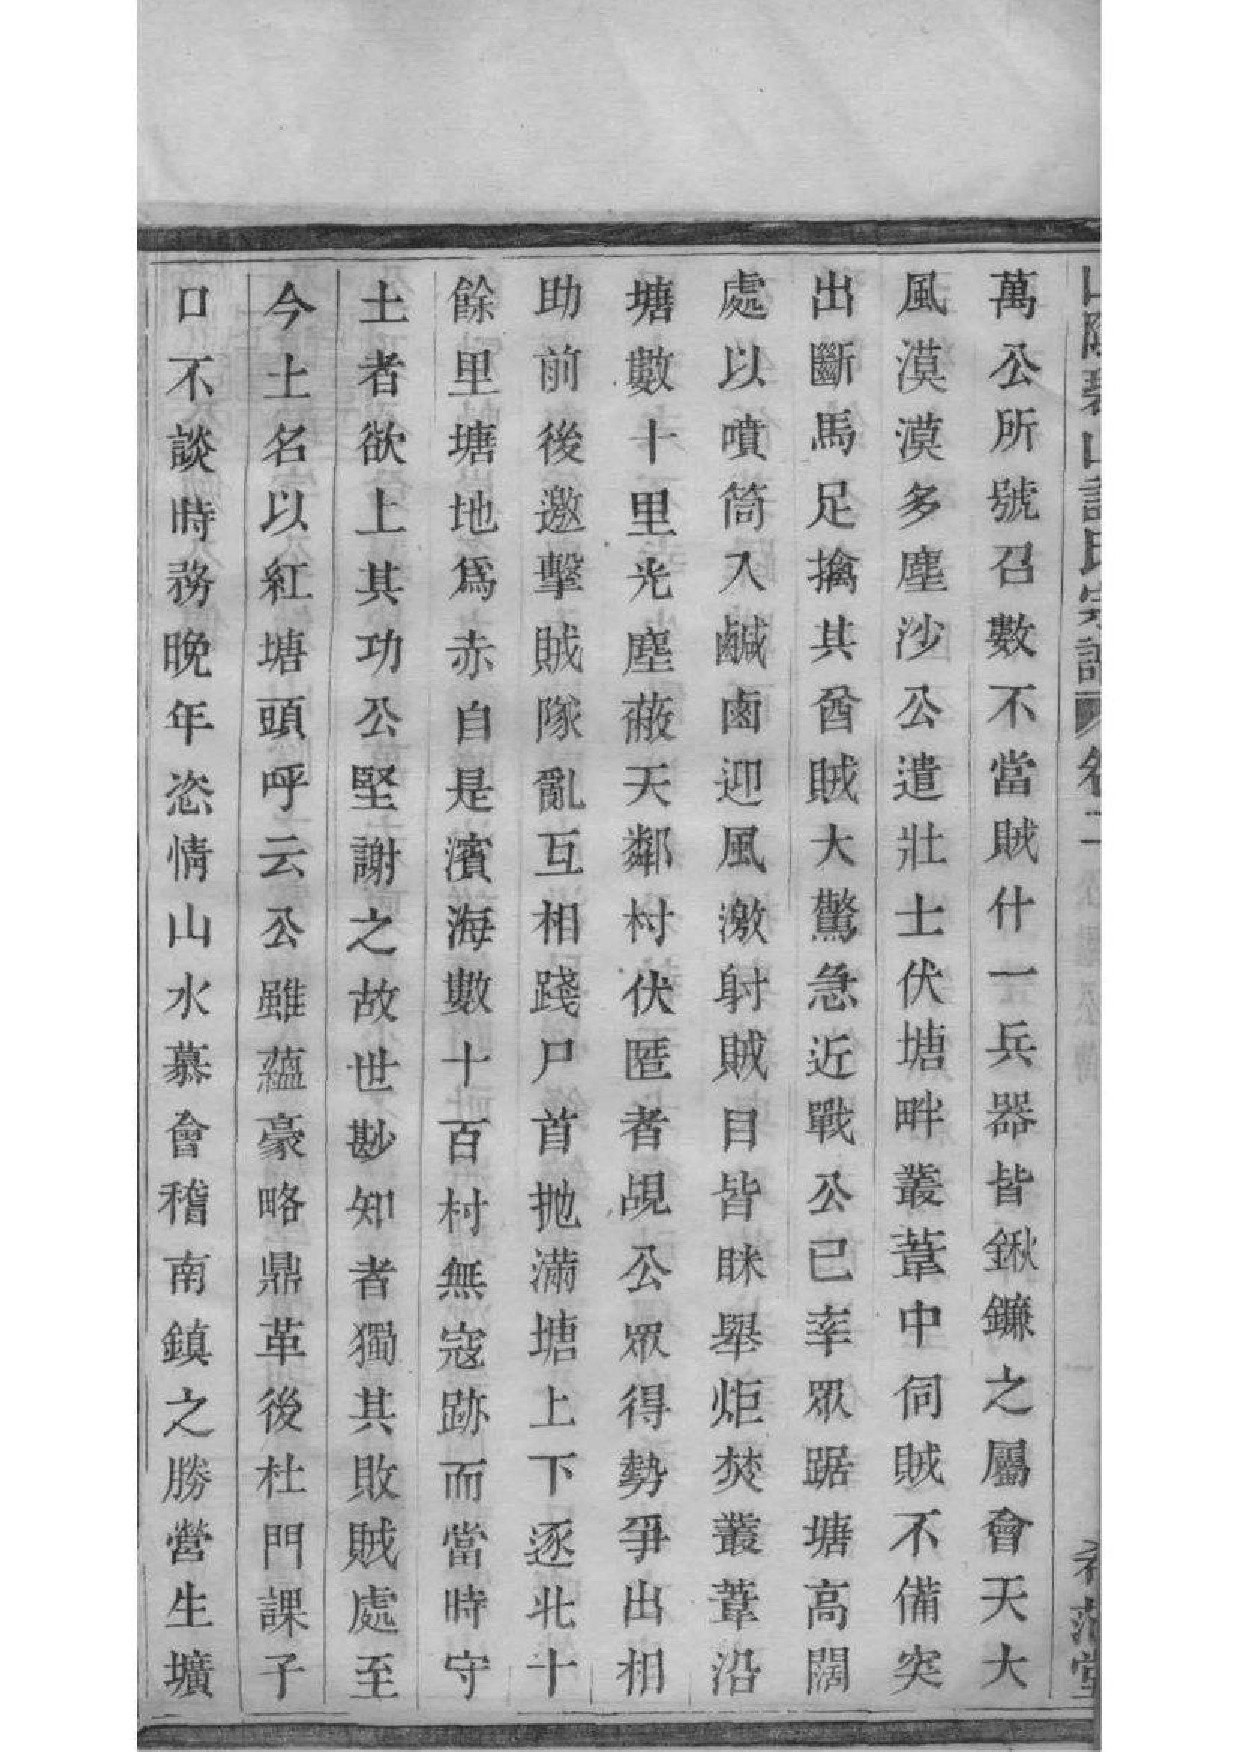 萬公所號召數不當賊什一兵器皆鍬鐮之屬會天大
風漠漠多塵沙公遣壯士伏塘畔叢葦中伺賊不備突
出斷馬足擒其酋賊大驚急近戰公已率眾踞塘高闊
處以噴筒入鹹鹵迎風激射賊目皆眯舉炬焚叢葦沿
塘數十里光塵蔽天鄰村伏匿者覘公眾得勢爭出相
助前後邀擊賊隊亂互相踐尸首拋滿塘上下逐北十
餘里塘地爲赤自是濱海數十百村無寇跡而當時守
土者欲上其功公堅謝之故世尠知者獨其敗賊處至
今土名以紅塘頭呼云公雖蘊豪略鼎革後杜門課子
口不談時務晚年恣情山水慕會稽南鎮之勝營生壙